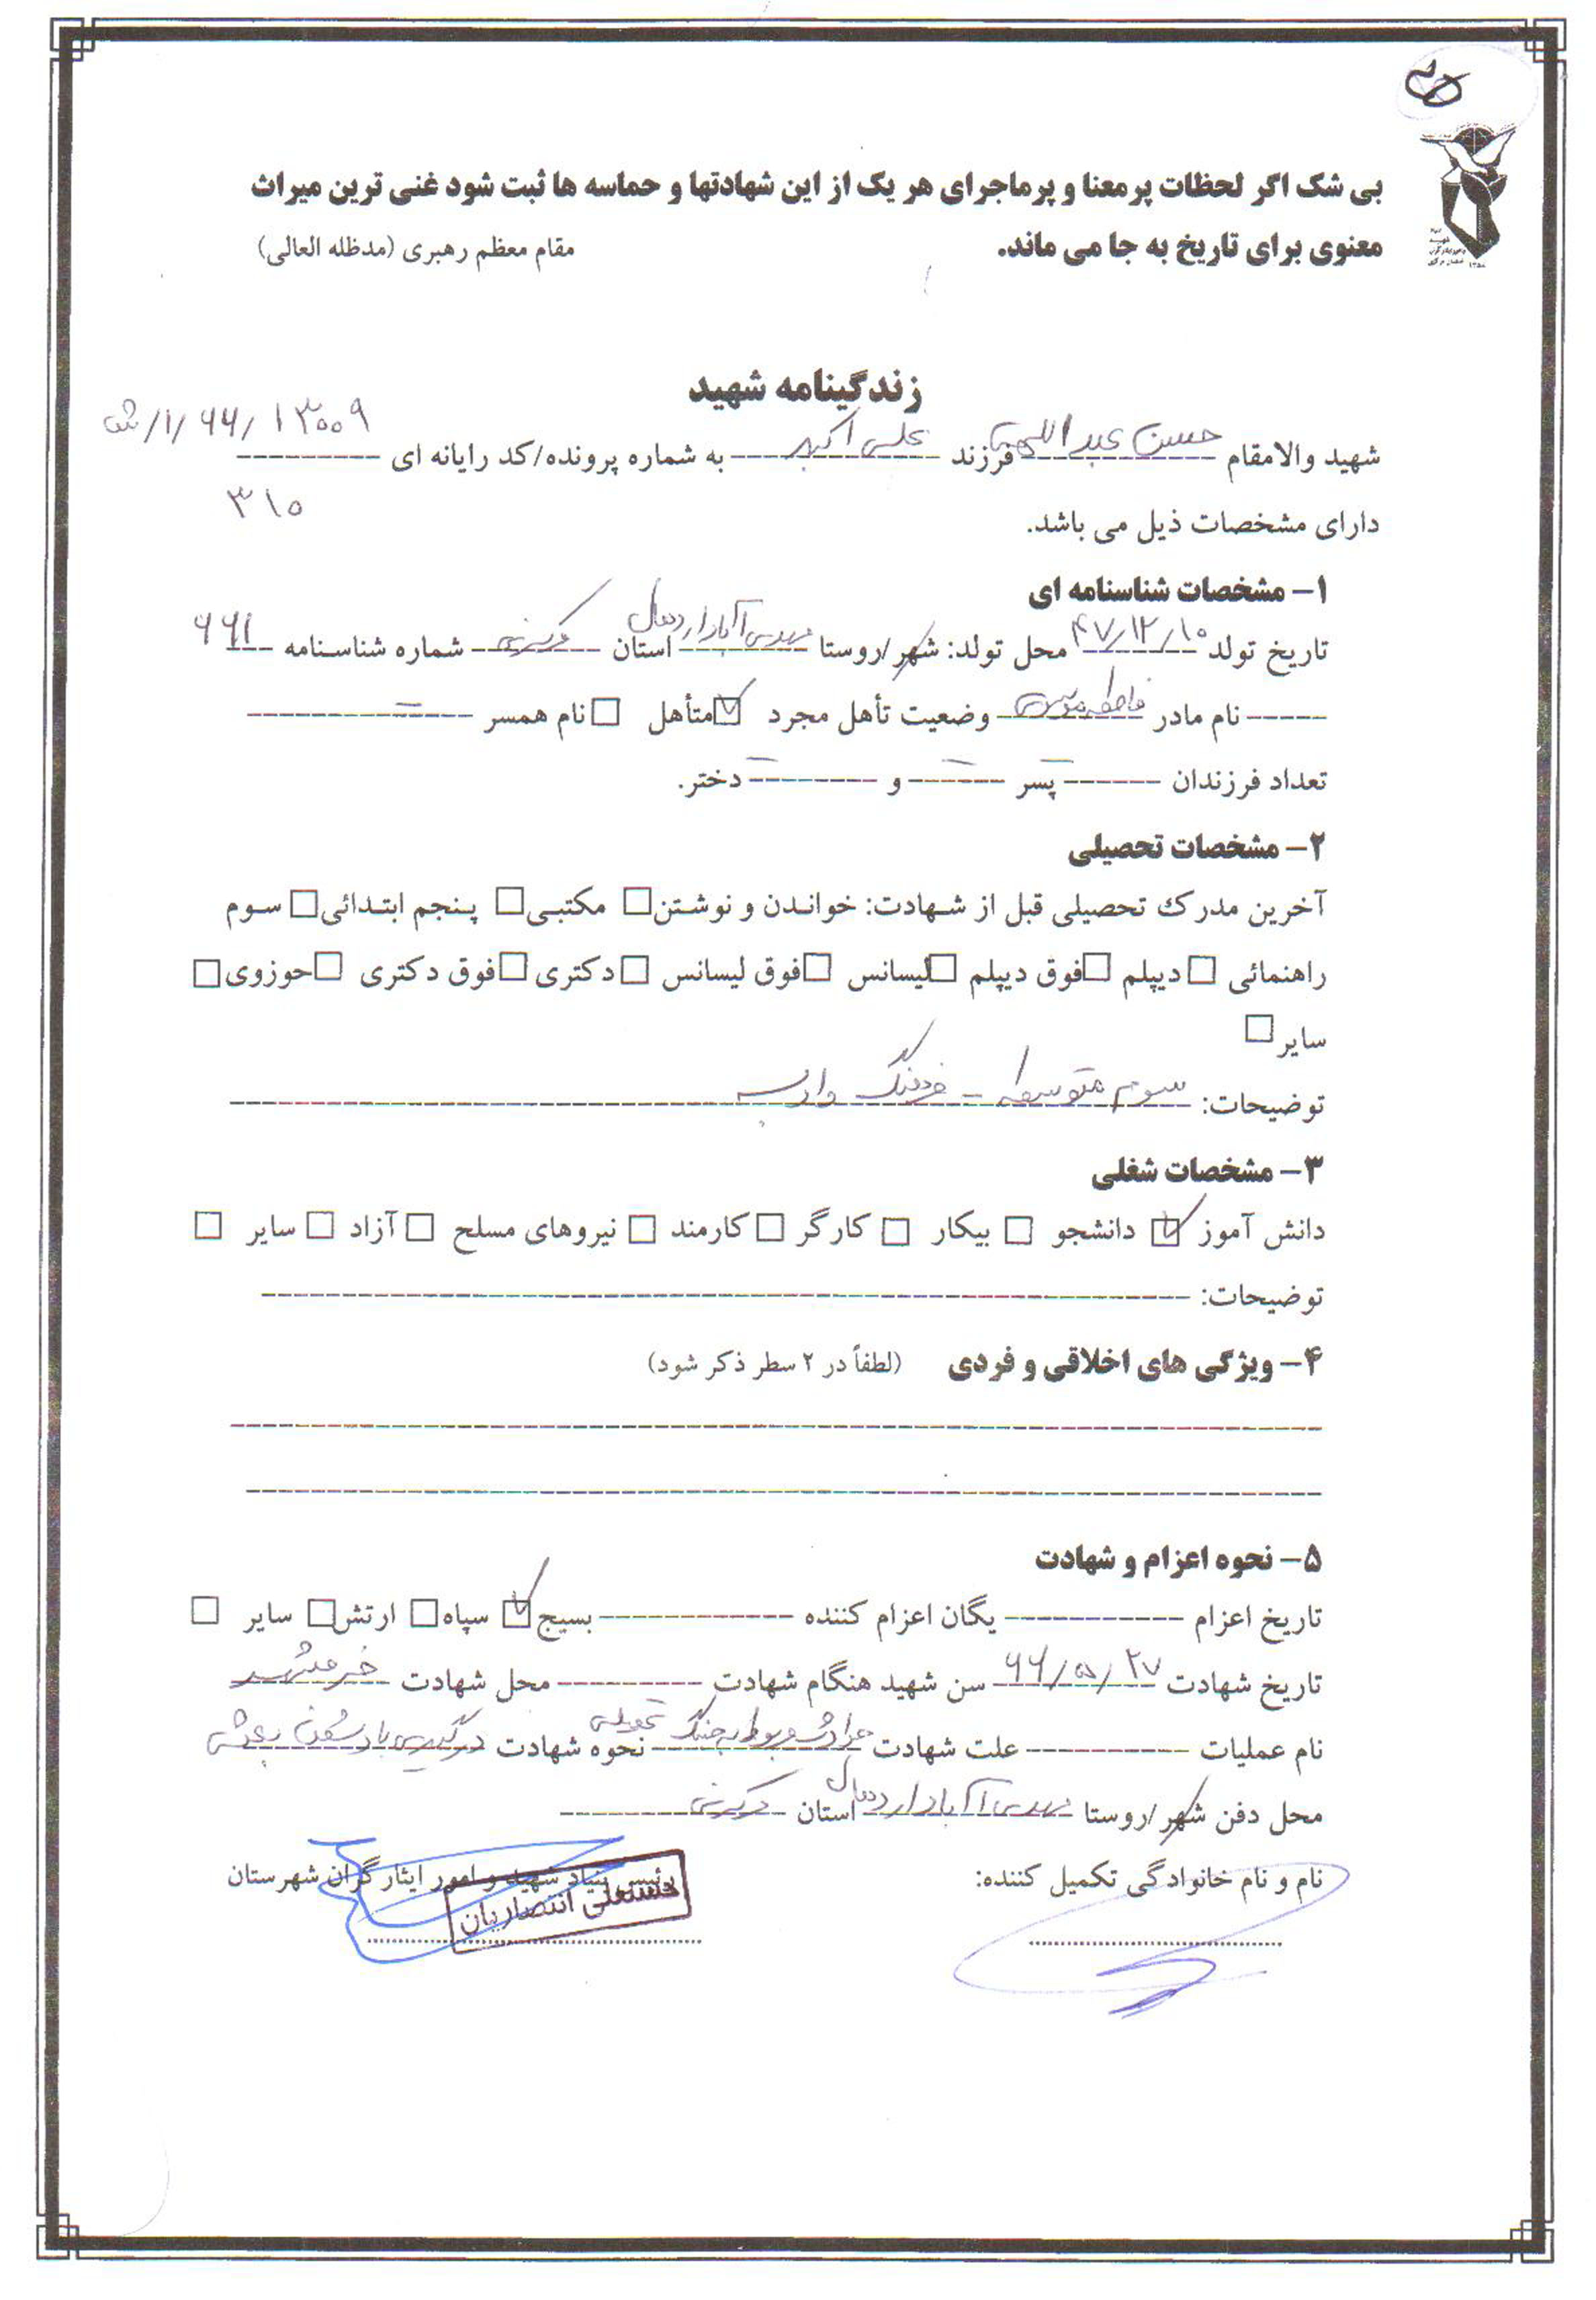 بی شک اگر لحظات پرمعنا و پرماجرای هر یک از این شهادتها و حماسه ها ثبت شود غنی ترین میراث
معنوی برای تاریخ به جا می ماند. مقام معظم رهبری (مدظله العالی)
زندگینامه شهید
شهید والامقام حسن عبداللهی فرزند علی اکبر به شماره پرونده/کد رایانه ای ۱۳۰۰۹/۶۶/۱/ش
۳۱۵
دارای مشخصات ذیل می باشد.
۱- مشخصات شناسنامه ای
تاریخ تولد ۴۷/۱۲/۱۰ محل تولد: شهر/روستا مهدی آباد اردهال استان مرکزی شماره شناسنامه ۶۶۱
نام مادر فاطمه وضعیت تأهل مجرد ☑ متأهل □ نام همسر –
تعداد فرزندان – پسر – و – دختر.
۲- مشخصات تحصیلی
آخرین مدرک تحصیلی قبل از شهادت: خواندن و نوشتن □ مکتبی □ پنجم ابتدائی □ سوم
راهنمائی □ دیپلم □ فوق دیپلم □ لیسانس □ فوق لیسانس □ دکتری □ فوق دکتری □ حوزوی □
سایر □
توضیحات: سوم متوسطه - فرهنگ و ادب
۳- مشخصات شغلی
دانش آموز ☑ دانشجو □ بیکار □ کارگر □ کارمند □ نیروهای مسلح □ آزاد □ سایر □
توضیحات:
۴- ویژگی های اخلاقی و فردی (لطفاً در ۲ سطر ذکر شود)
۵- نحوه اعزام و شهادت
تاریخ اعزام یگان اعزام کننده بسیج ☑ سپاه □ ارتش □ سایر □
تاریخ شهادت ۶۶/۵/۲۷ سن شهید هنگام شهادت محل شهادت خرمشهر
نام عملیات علت شهادت حوادث مربوط به جنگ تحمیلی نحوه شهادت درگیری با دشمن بعثی
محل دفن شهر/روستا مهدی آباد اردهال استان مرکزی
نام و نام خانوادگی تکمیل کننده: رئیس بنیاد شهید و امور ایثارگران شهرستان
حسنعلی انتصاریان